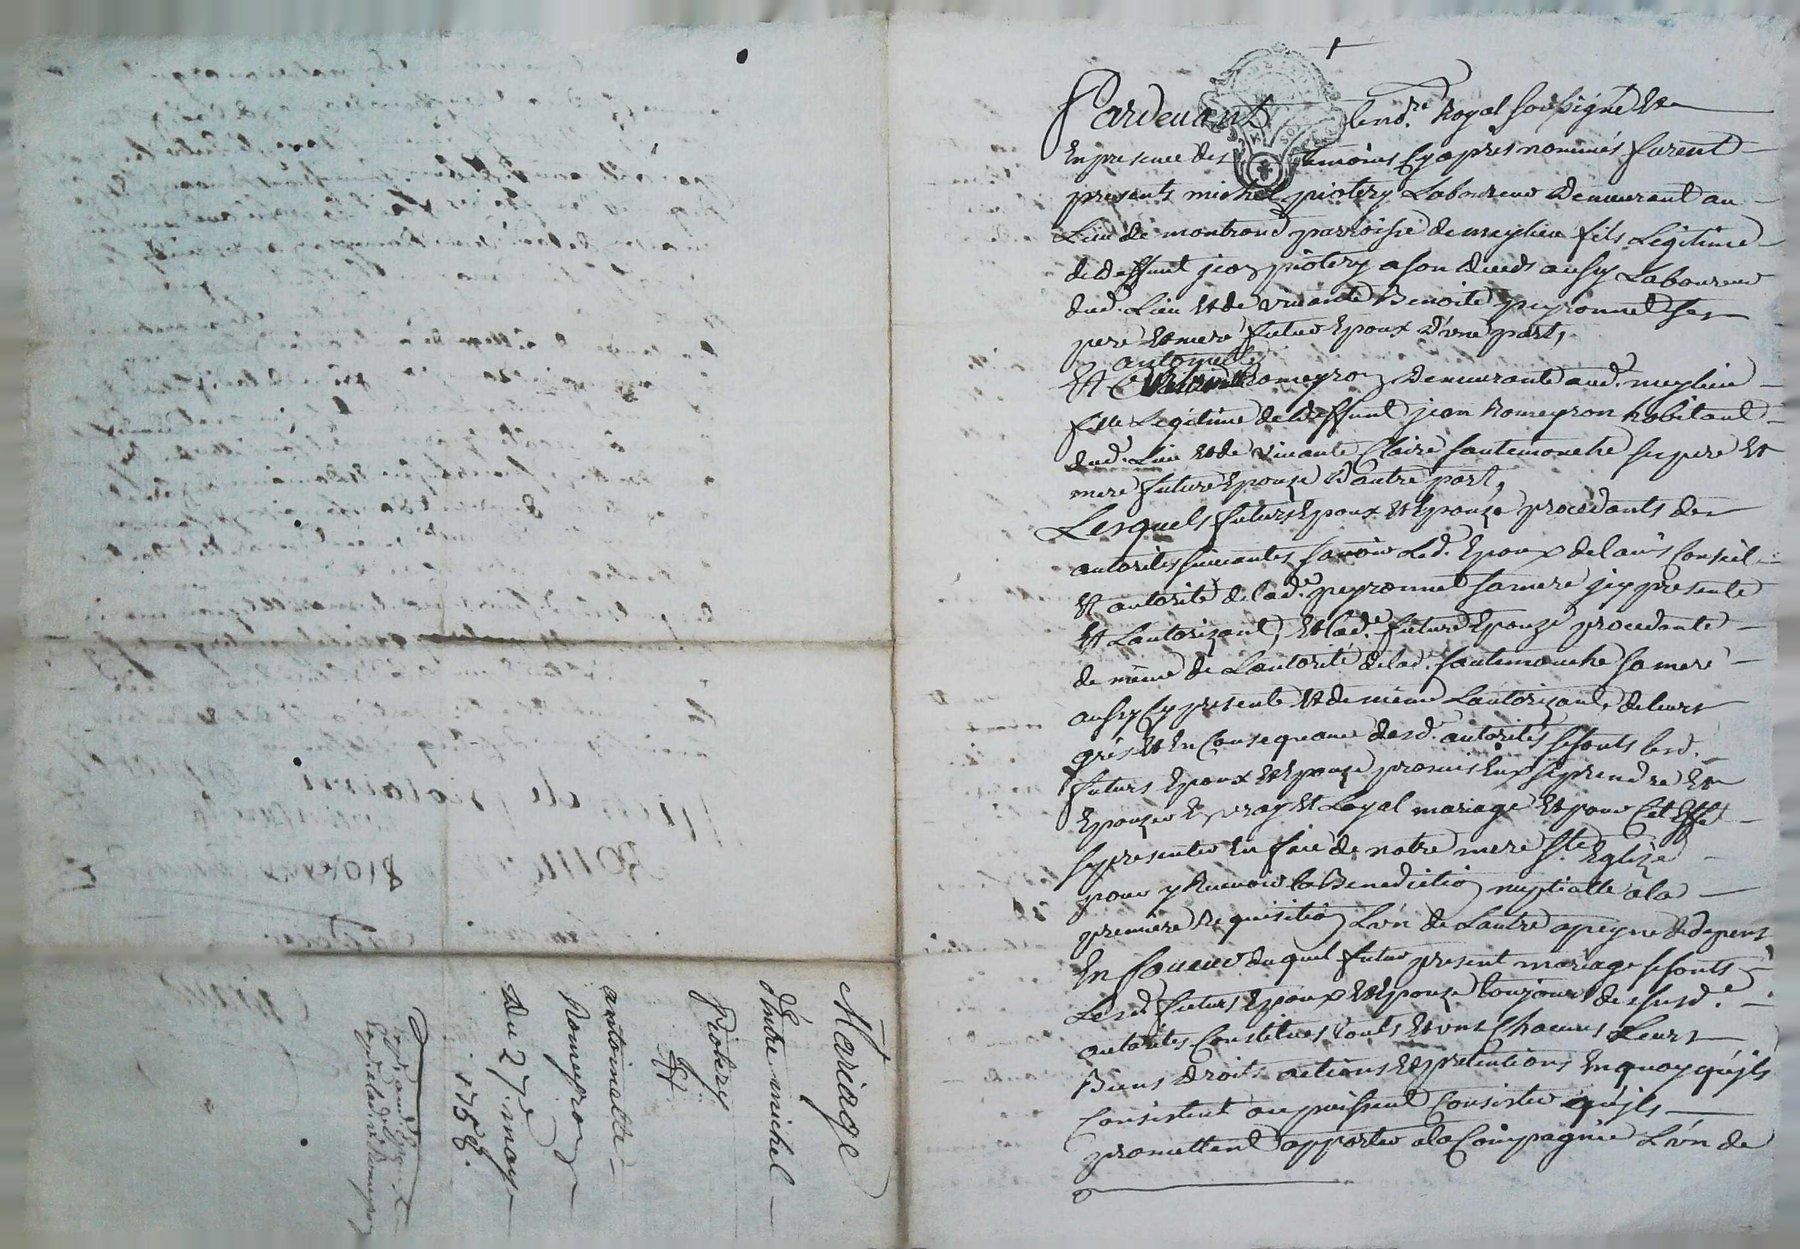 Mariage
d'Entre michel
Piotery
Et
antoinette
Romeyron
Du 27e may
1758.
Pardevant le nore. Royal soussigné Et
En presence des temoins Cy apres nommés furent
presents michel piotery Laboureur Demeurant au
Lieu de montrond parroisse de meylieu fils Legitime
de deffunt jean piotery a son deceds aussy Laboureur
dud. Lieu Et de vivante Benoite peyronnet ses
pere Et mere futur Epoux d'vne part,
antoinette
Et Romeyron Demeurante aud. meylieu
fille Legitime de deffunt jean Romeyron habitant
dud. Lieu Et de vivante Claire sautemouche ses pere Et
mere future Epouze D'autre part,
Lesquels futurs Epoux Et Epouze procedants des
autorités suivantes savoir Led. Epoux de lavis Conseil
Et autorité de lad.e peyronnet sa mere jcy presente
Et Lautorizant, Et lad.e future Epouze procedante
de même de Lautorité de lad. sautemouche sa mere
aussy Cy presente Et de même Lautorizant, de leurs
grés Et En Consequance desd. autorités se sonts lesd.
futurs Epoux Et Epouze promis Eux se prendre Et
Epouzer En vray Et Loyal mariage Et pour Cet Effet
se presenter En face de notre mere Ste Eglize
pour y Recevoir la Benediction nuptialle a la
premiere Requisition L'vn de Lautre a peyne de depens
En faveur duquel futur present mariage se sonts
Lesd. futurs Epoux Et Epouze toujours des susd.e
autorités Constitués touts Et vns Chacuns Leurs
Biens droits actions Et pretentions En quoy qu'jls
Consistent ou puissent Consister qu'jls
promettent apporter a la Compagnie L'vn de